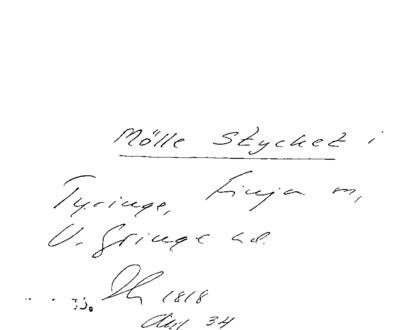 Mölle Stycket i
Tyringe, Finja m,
V. Göinge hd.
1818
34